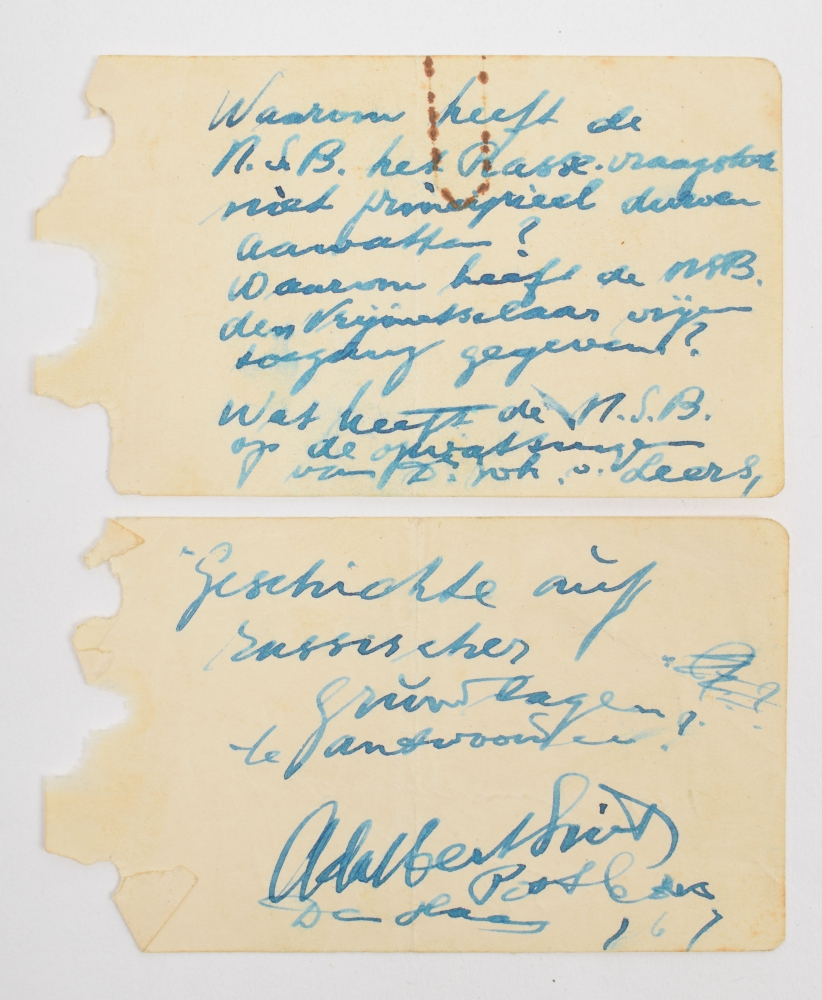 Waarom heeft de
N.S.B. het Rasse-vraagstuk
niet principieel durven
aanvatten?
Waarom heeft de NSB.
den Vrijmetselaar vrije
toegang gegeven?
Wat heeft de N.S.B.
op de opvattingen
van Dr. Joh. v. Leers,
"Geschichte auf
rassischer
Grundlagen
te antwoorden?
Adalbert Smit
Postbox
Den Haag 167